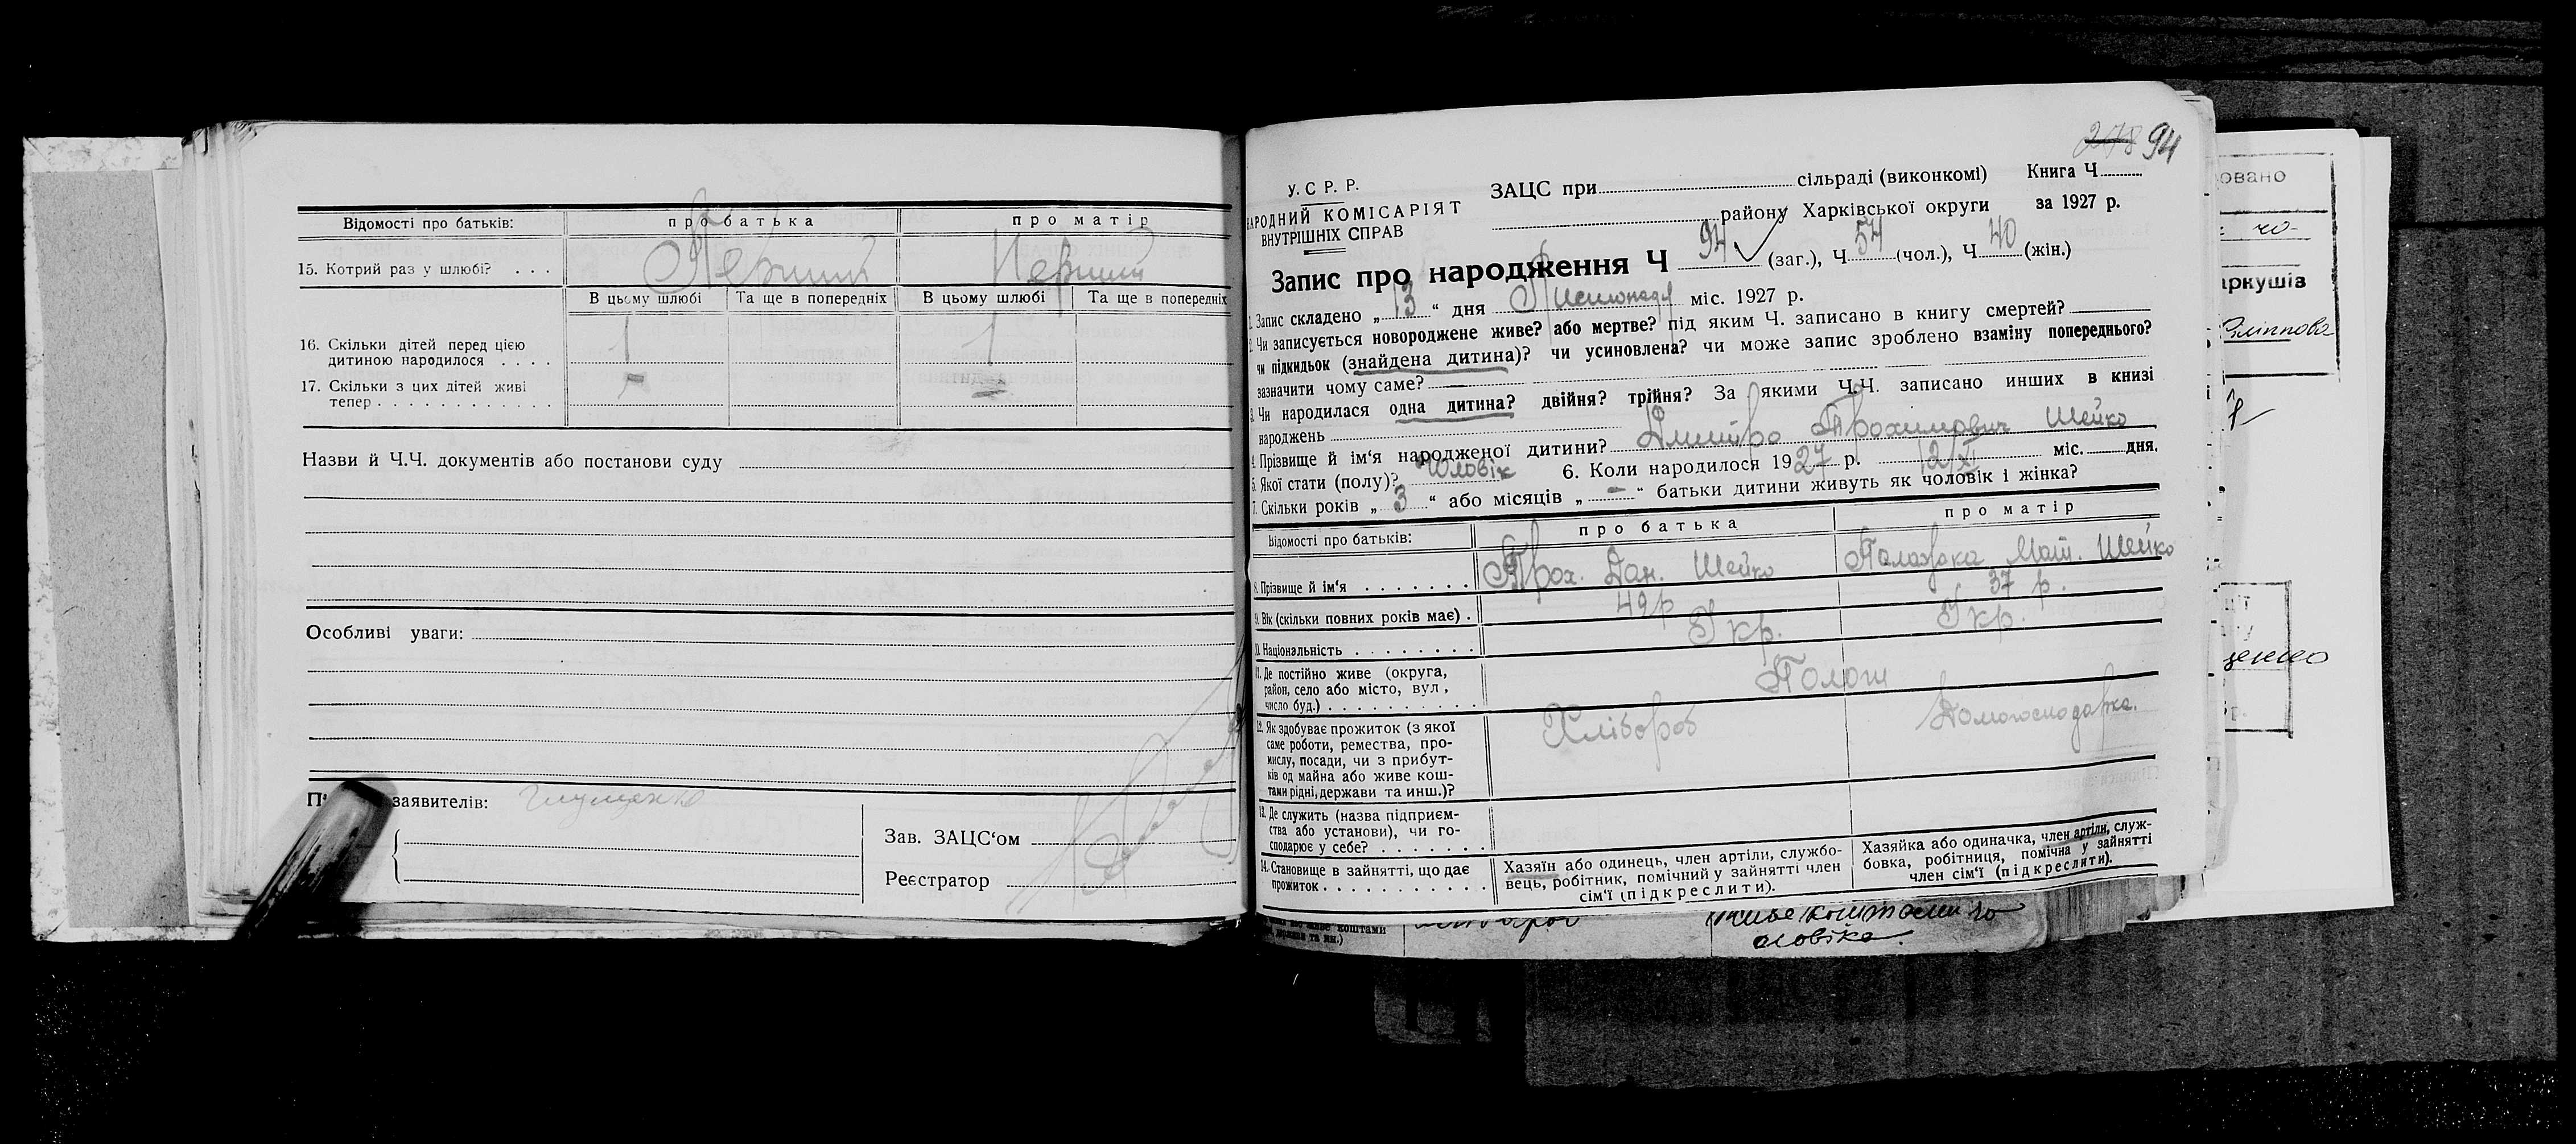 Відомості про батьків: про батька про матір
15. Котрий раз у шлюбі? . . . Перший Перший
В цьому шлюбі Та ще в попередніх В цьому шлюбі Та ще в попередніх
16. Скільки дітей перед цією
дитиною народилося . . . . 1 1
17. Скільки з цих дітей живі
тепер . . . . . . . . . . . . - -
Назви й Ч.Ч. документів або постанови суду
Особливі уваги:
заявителів:
Зав. ЗАЦС‘ом
Реєстратор
278 94
У. С Р. Р.
НАРОДНИЙ КОМІСАРІЯТ
ВНУТРІШНІХ СПРАВ
ЗАЦС при сільраді (виконкомі) Книга Ч
району Харківської округи за 1927 р.
Запис про народження Ч 94 (заг.), Ч 54 (чол.), Ч 40 (жін.)
1. Запис складено „ 13 “ дня Листопада міс. 1927 р.
2. Чи записується новороджене живе? або мертве? під яким Ч. записано в книгу смертей?
чи підкидьок (знайдена дитина)? чи усиновлена? чи може запис зроблено взаміну попереднього?
зазначити чому саме?
3. Чи народилася одна дитина? двійня? трійня? За якими Ч.Ч. записано инших в книзі
народжень
4. Прізвище й ім‘я народженої дитини? Дмитро Трохимович Шейко
5. Якої стати (полу)? Чоловік 6. Коли народилося 1927 р. 12/XI міс. дня.
7. Скільки років „ 3 “ або місяців „ - “ батьки дитини живуть як чоловік і жінка?
Відомості про батьків: про батька про матір
8. Прізвище й ім‘я . . . . . . . Трох. Дан. Шейко Палажка Мат. Шейко
9. Вік (скільки повних років має) . 49 р 37 р.
10. Національність . . . . . . . . Укр. Укр.
11. Де постійно живе (округа,
район, село або місто, вул,
число буд.) . . . . . . . . . .
12. Як здобуває прожиток (з якої
саме роботи, ремества, про-
мислу, посади, чи з прибут-
ків од майна або живе кош-
тами рідні, держави та инш.)? Хлібороб Домогосподарка.
13. Де служить (назва підприєм-
ства або установи), чи го-
сподарює у себе? . . . . . . .
14. Становище в зайнятті, що дає
прожиток . . . . . . . . . . .
Хазяїн або одинець, член артіли, службо-
вець, робітник, помічний у зайнятті член
сім‘ї (підкреслити).
Хазяйка або одиначка, член артіли, служ-
бовка, робітниця, помічна у зайнятті
член сім‘ї (підкреслити).
живе коштами чо
ловіка.
коштами
держави та ин.)
овано
аркушів